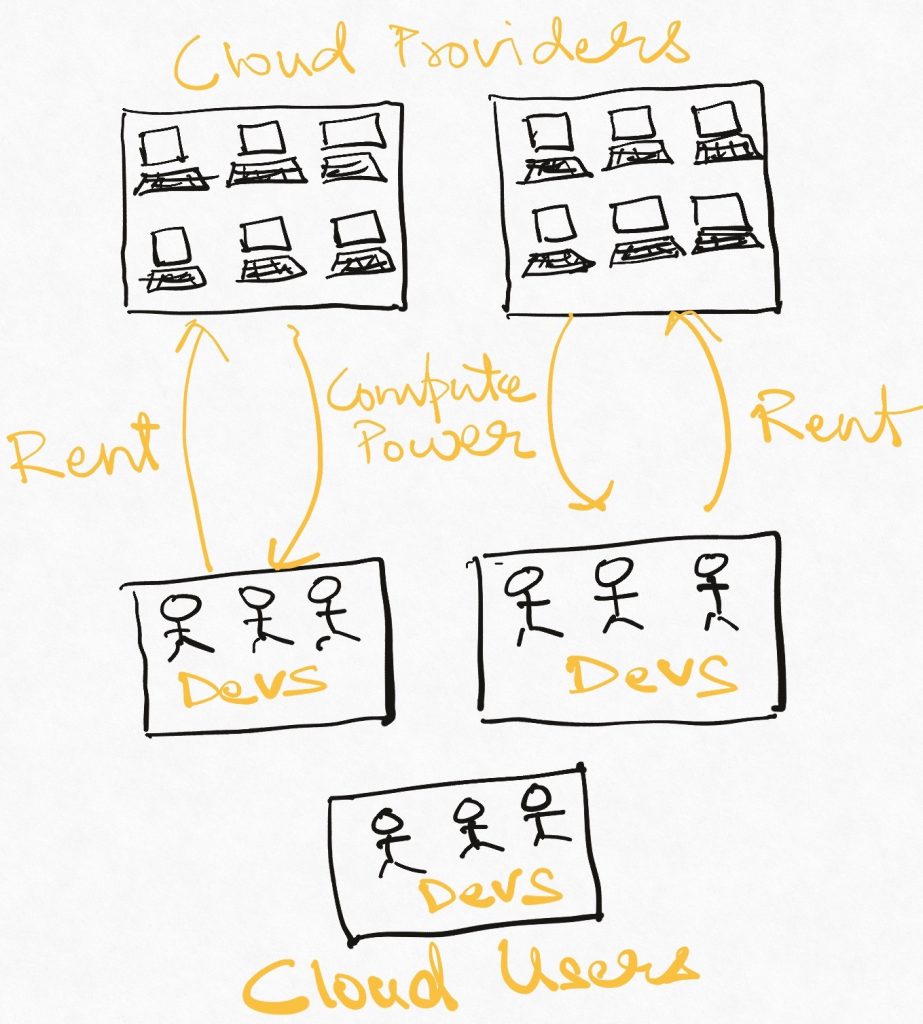 Cloud Providers
Rent
Compute
Power
Rent
Devs
Devs
Devs
Cloud Users